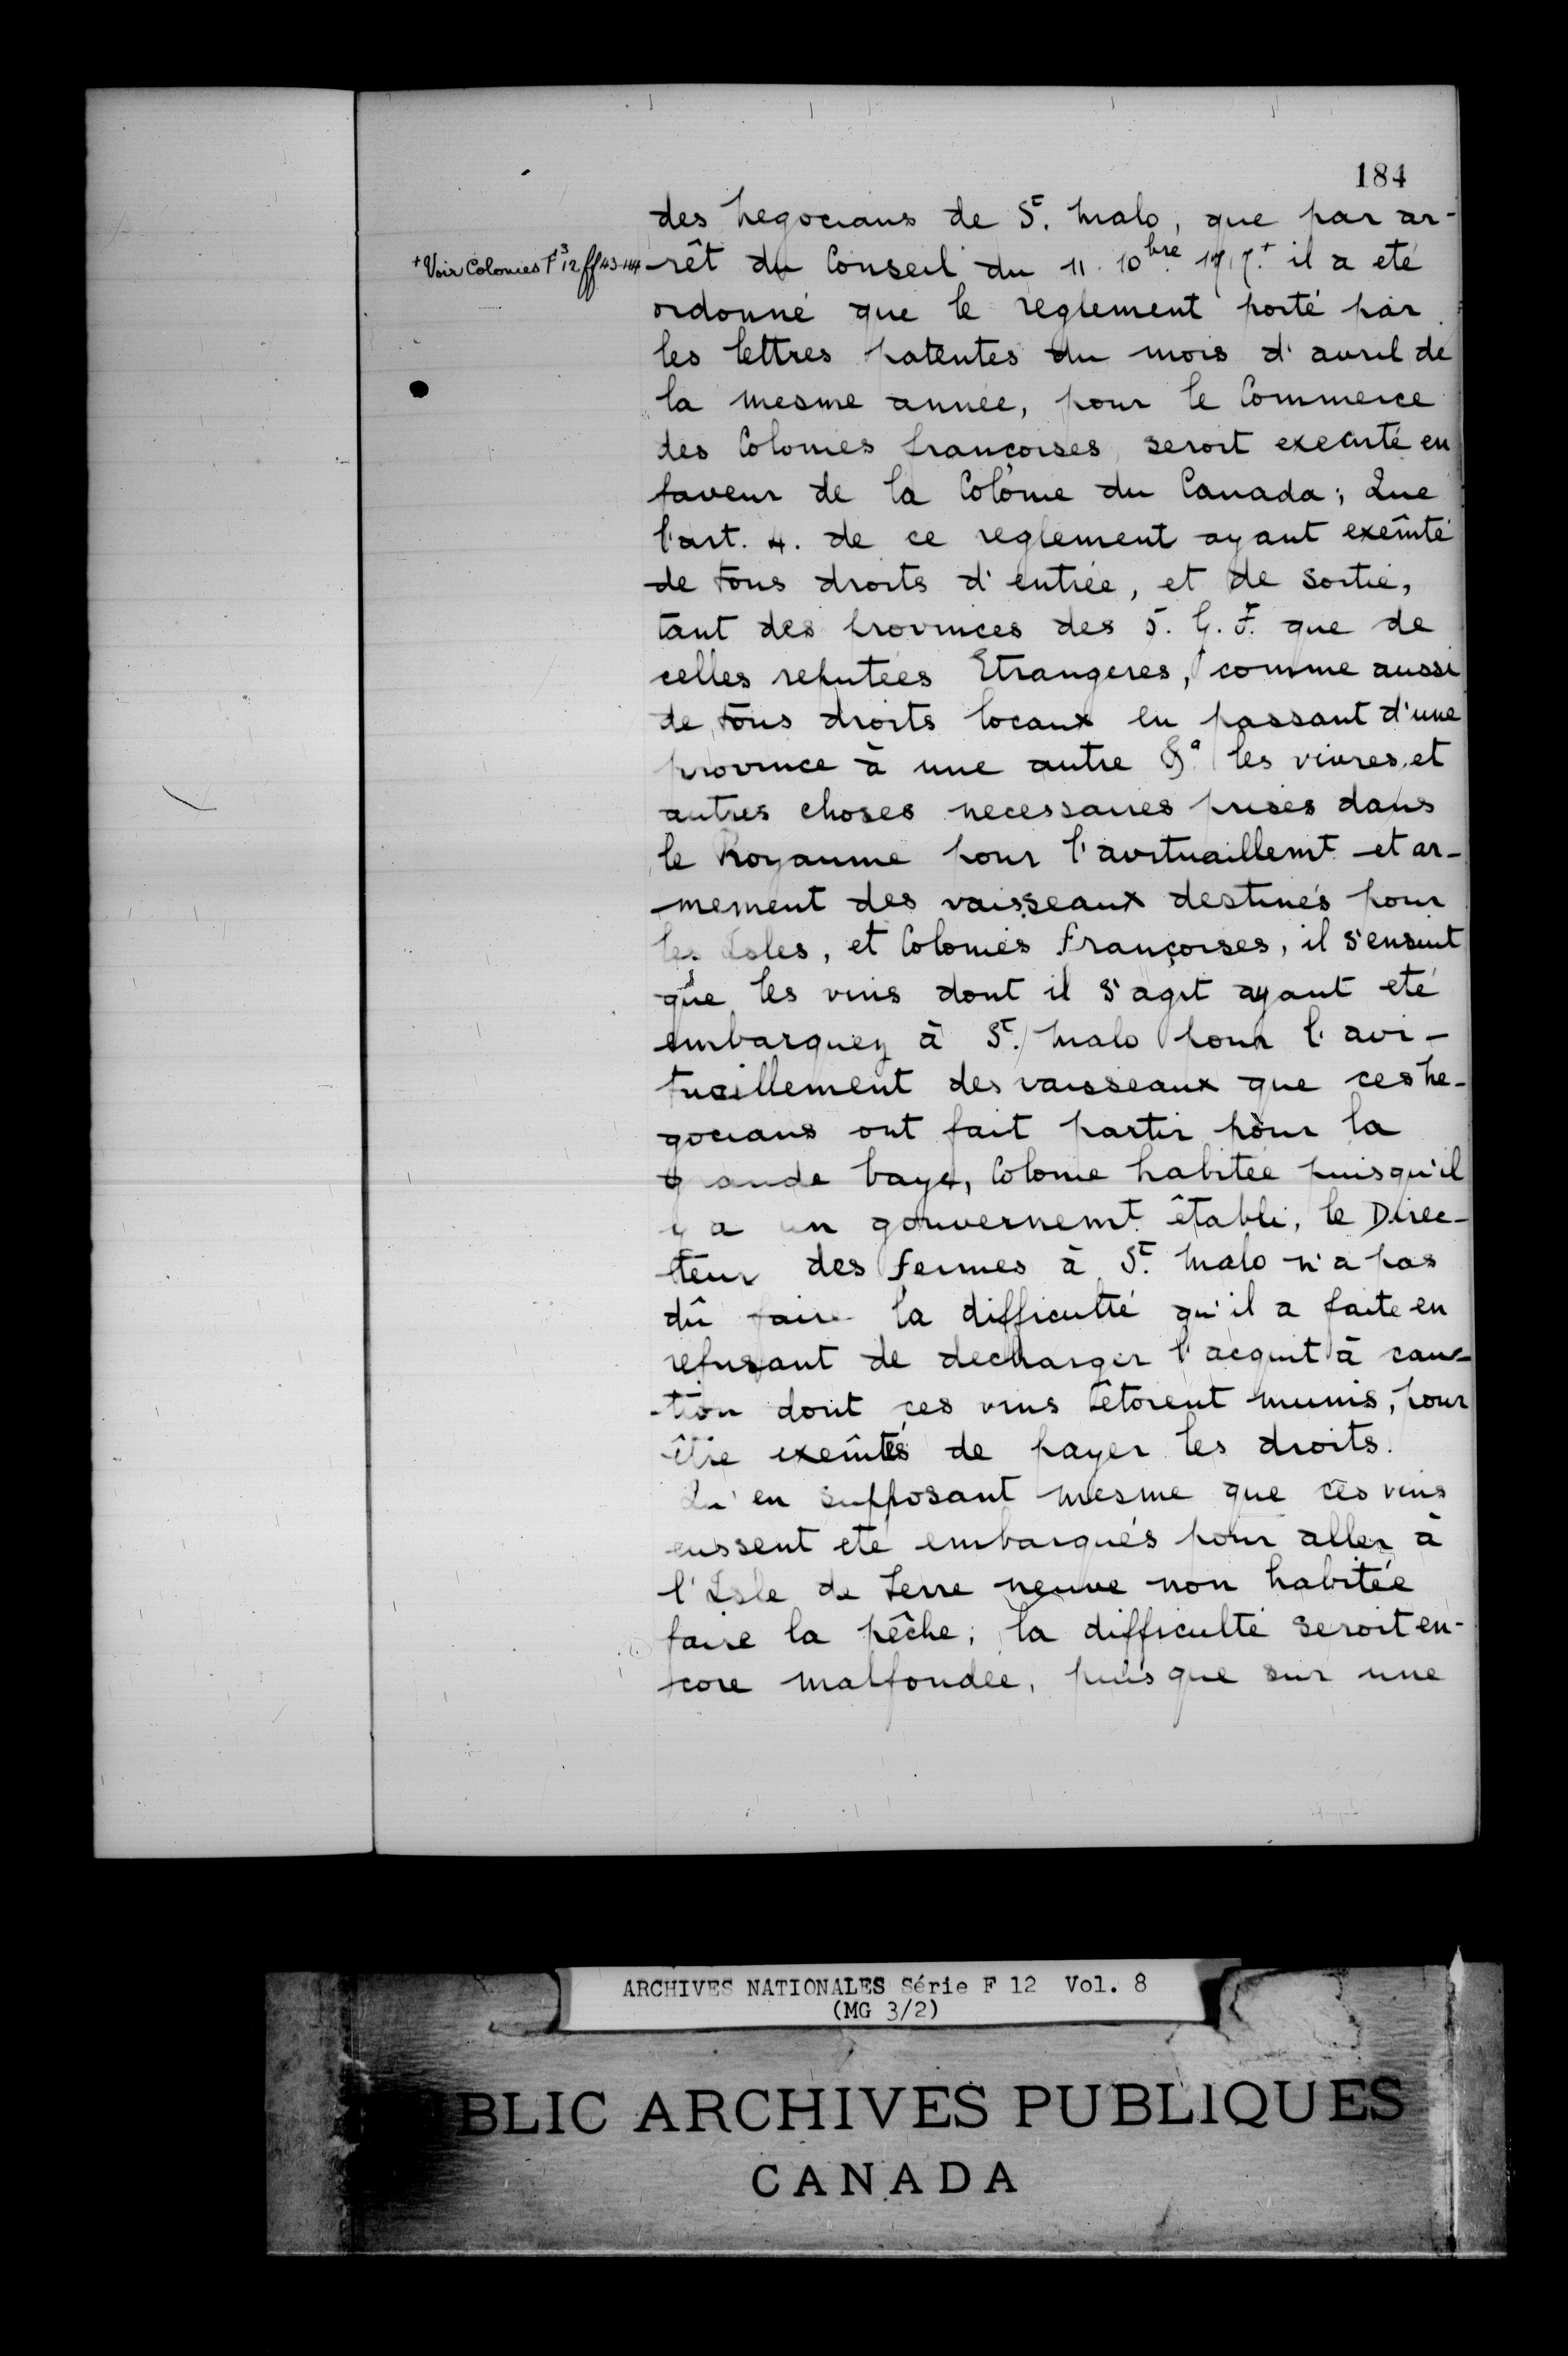 184
des Negocians de St. Malo, que par ar-
+ Voir Colonies F3 12 ff 43-144
rêt du Conseil du 11. 10bre 1717.+ il a eté
ordonné que le reglement porté par
les lettres patentes du mois d'avril de
la mesme année, pour le Commerce
des Colonies françoises, seroit executé en
faveur de la Colonie du Canada; Que
l'art. 4. de ce reglement ayant exemté
de tous droits d'entrée, et de sortie,
tant des provinces des 5. G. F. que de
celles reputées Etrangeres, comme aussi
de tous droits locaux en passant d'une
province à une autre les vivres et
autres choses necessaires prises dans
le Royaume pour l'avituaillemt et ar-
mement des vaisseaux destinés pour
les Isles, et Colonies Françoises, il s'ensuit
que les vins dont il s'agit ayant eté
embarquez à St. Malo pour l'avi-
tuaillement des vaisseaux que ces Ne-
gocians ont fait partir pour la
grande baye, Colonie habitée puisqu'il
y a un gouvernemt. établi, le Direc-
teur des Fermes à St. Malo n'a pas
dû faire la difficulté qu'il a faite en
refusant de decharger l'acquit à cau-
tion dont ces vins êtoient munis, pour
être exemtés de payer les droits.
Qu'en supposant mesme que ces vins
eussent eté embarqués pour aller à
l'Isle de Terre neuve non habitée
faire la pêche; la difficulté seroit en-
core malfondée, puisque sur une
ARCHIVES NATIONALES Série F 12 Vol. 8
(MG 3/2)
BLIC ARCHIVES PUBLIQUES
CANADA